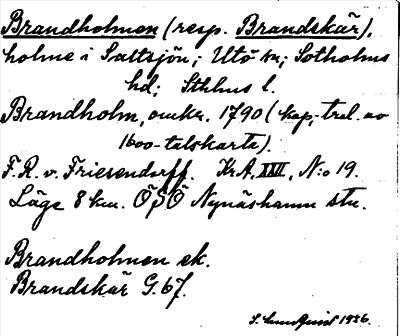 Brandholmen (resp. Brandskär),
holme i Saltsjön; Utö sn; Sotholms
hd; Sthlms l.
Brandholm, omkr. 1790 (kop. trol. av
1600-talskarta).
F. R. v. Friesendorff. KrA, XXII, N:o 19.
Läge 8 km. ÖSÖ Nynäshamn stn.
Brandholmen ek.
Brandskär G. 67.
S. Lundquist 1936.